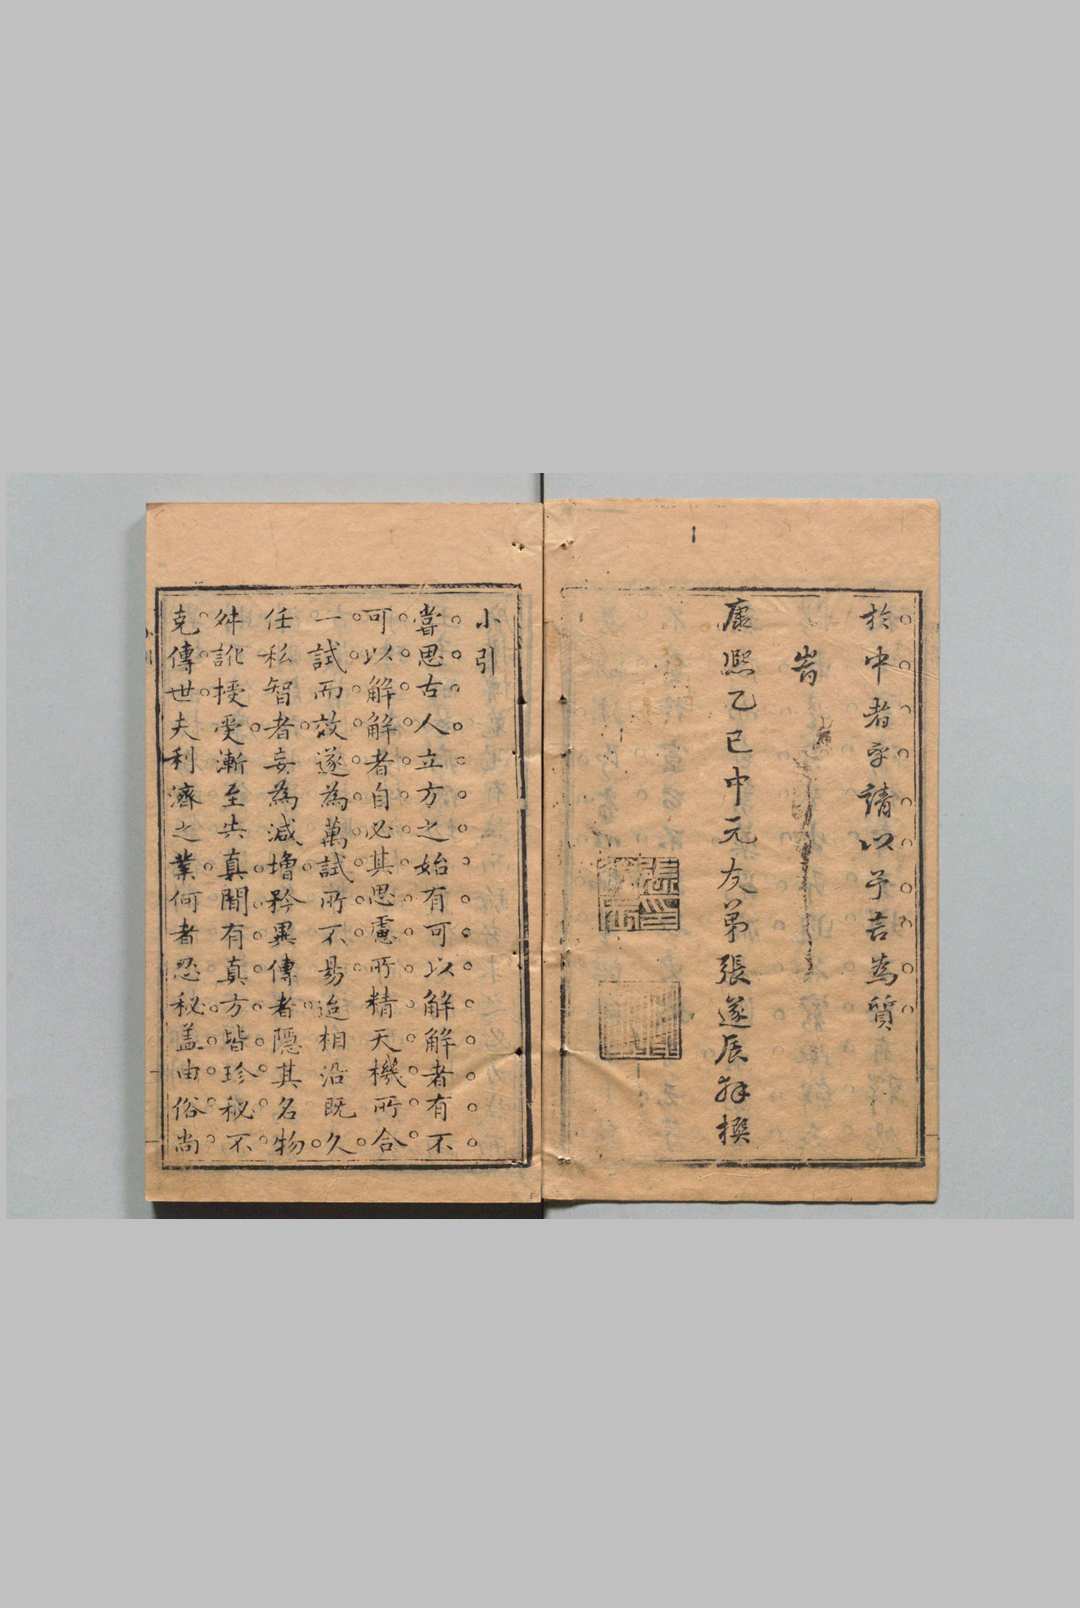 於中者乎請以予言為質
峕
康熙乙巳中元友弟張遂辰拜撰
小引
嘗思古人立方之始有可以解解者有不
可以解解者自必其思慮所精天機所合
一試而效遂為萬試所不易迨相沿既久
任私智者妄為減增矜異傳者隱其名物
舛訛授受漸至失真聞有真方皆珍秘不
克傳世夫利濟之業何者忍秘盖由俗尚